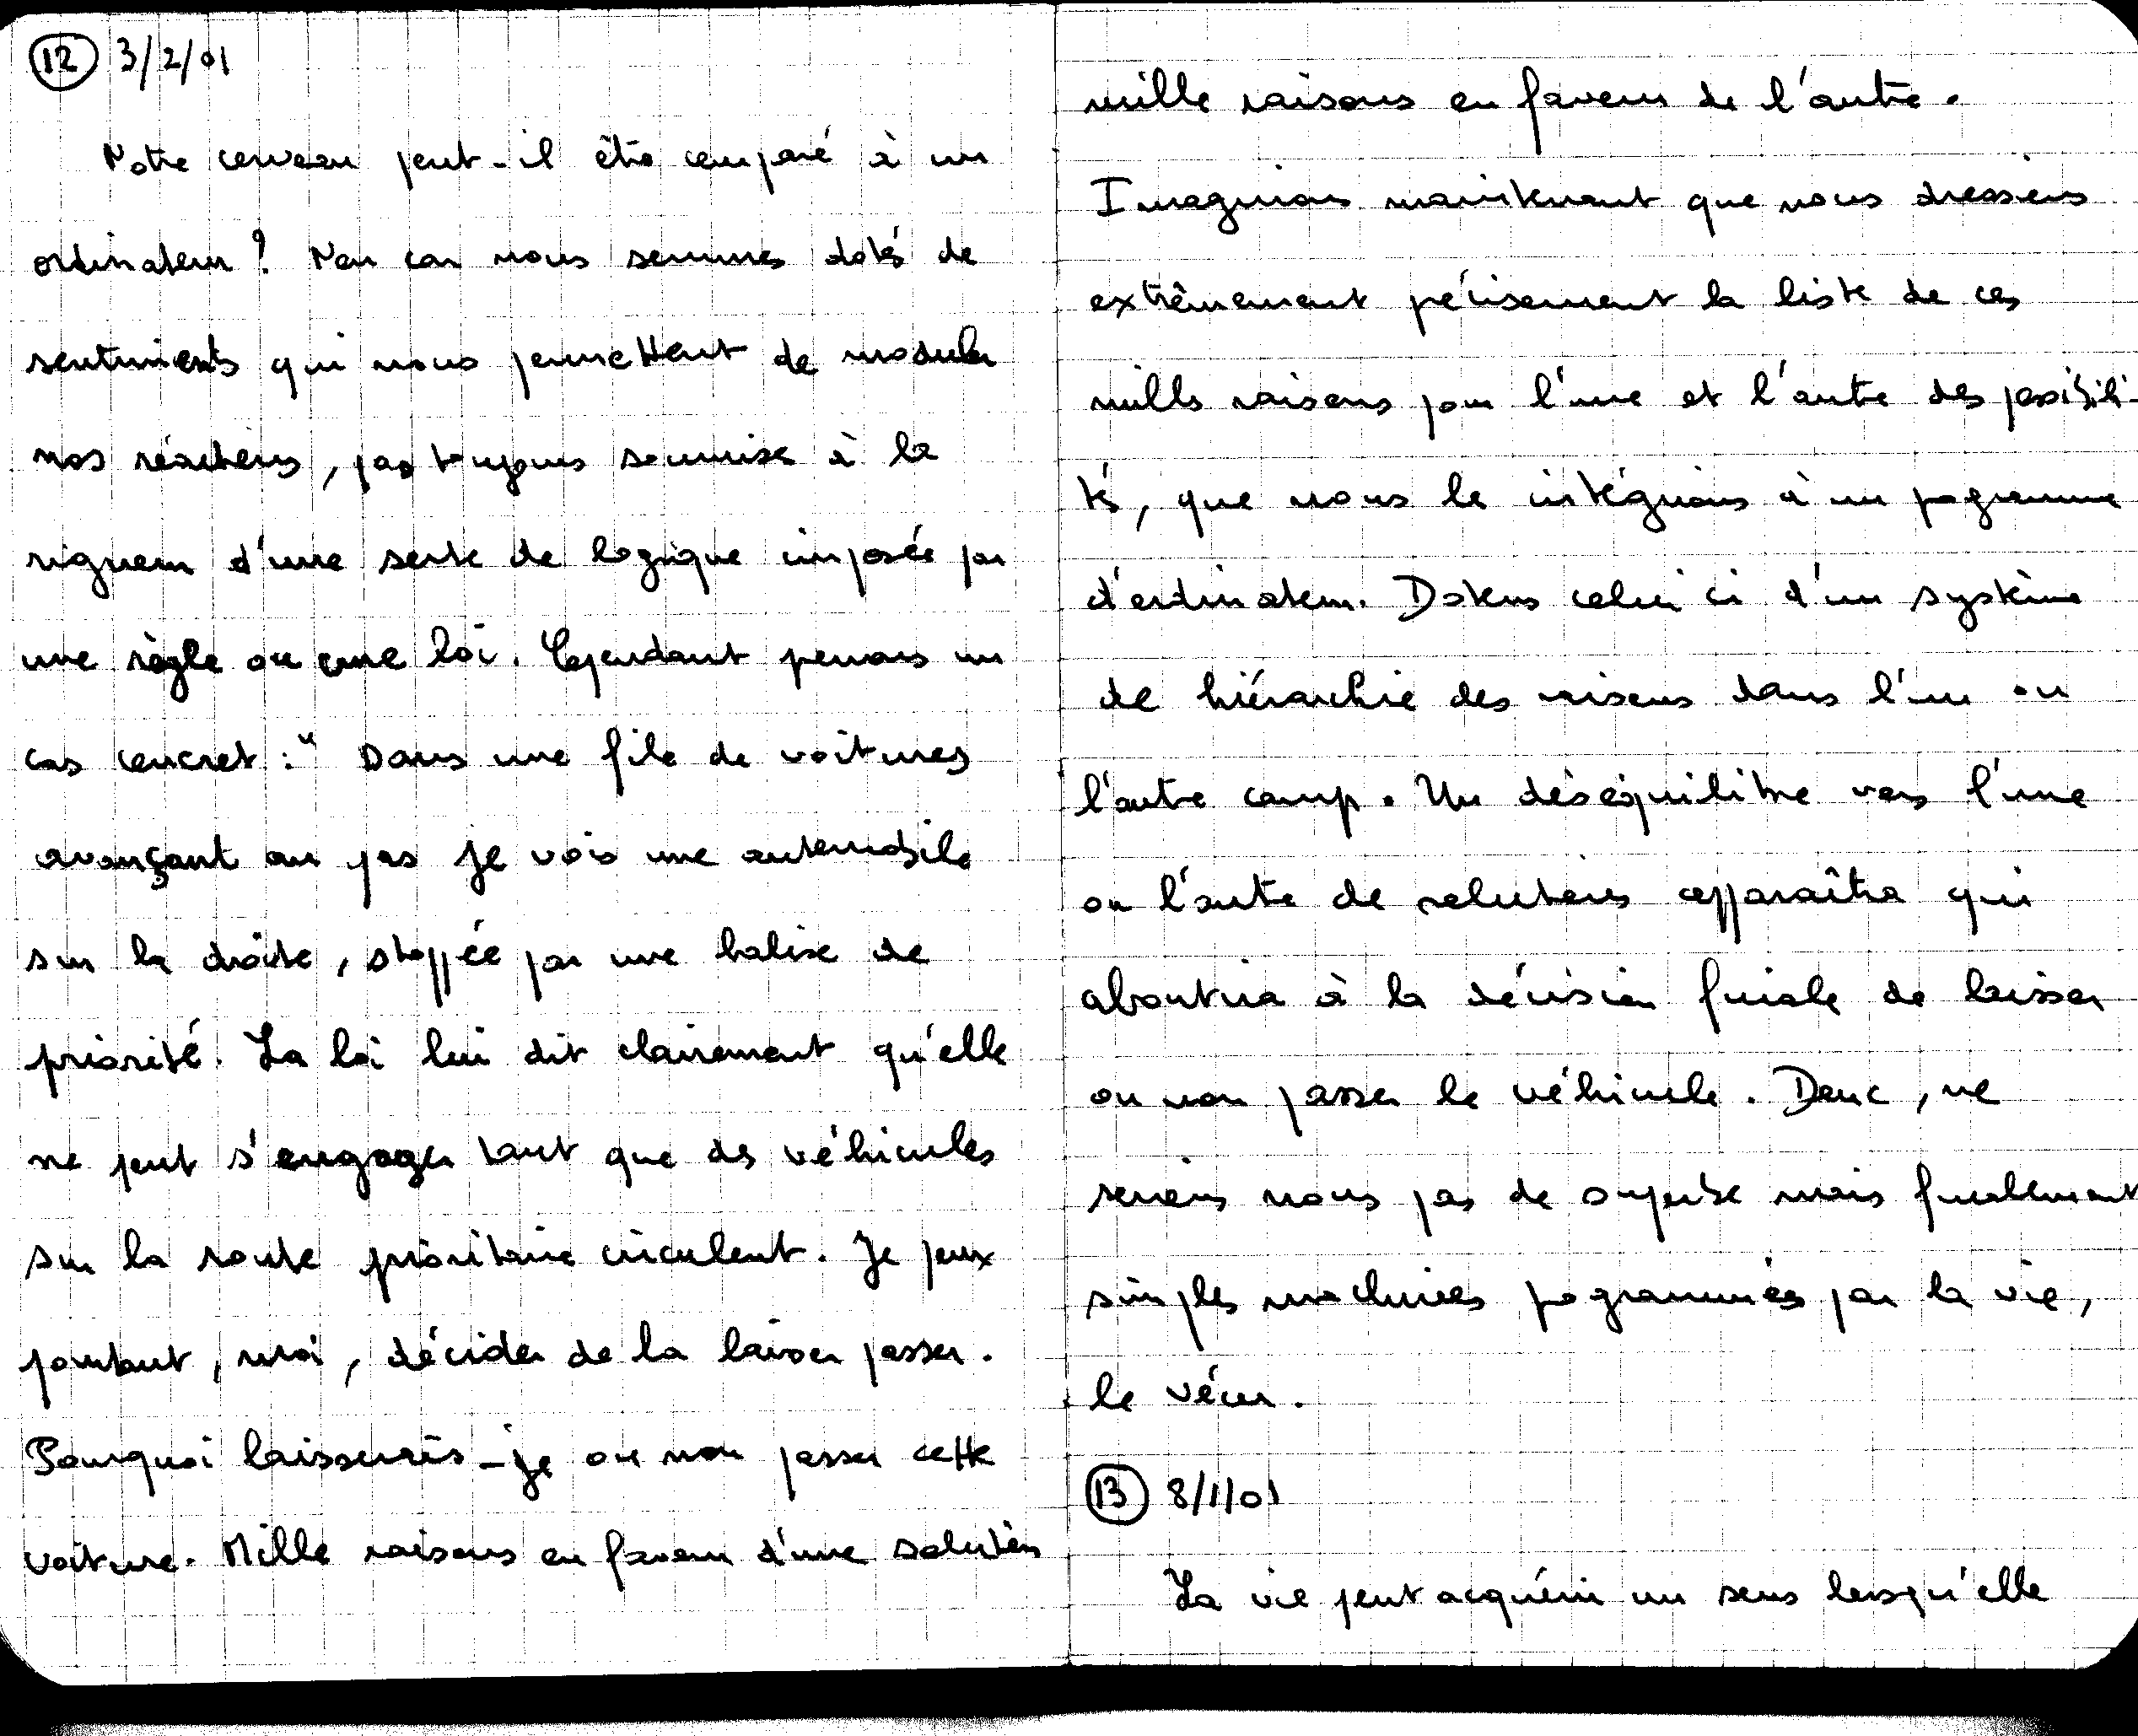 12 3/2/01
Notre cerveau peut-il être comparé à un
ordinateur ? Non car nous sommes dotés de
sentiments qui nous permettent de moduler
nos réactions, pas toujours soumise à la
rigueur d'une sorte de logique imposée par
une règle ou une loi. Cependant prenons un
cas concret : " Dans une file de voitures
avançant au pas je vois une automobile
sur la droite, stoppée par une balise de
priorité. La loi lui dit clairement qu'elle
ne peut s'engager tant que des véhicules
sur la route prioritaire circulent. Je peux
pourtant, moi, décider de la laisser passer.
Pourquoi laisserais-je ou non passer cette
voiture. Mille raisons en faveur d'une solution
mille raisons en faveur de l'autre.
Imaginons maintenant que nous dressions
extrêmement précisement la liste de ces
mille raisons pour l'une et l'autre des possibili-
tés, que nous le intégrions à un programme
d'ordinateur. Dotons celui ci d'un système
de hiérarchie des raisons dans l'un ou
l'autre camp. Un déséquilibre vers l'une
ou l'autre de solutions apparaîtra qui
aboutira à la décision finale de laisser
ou non passer le véhicule. Donc, ne
serions nous pas de sorte mais finalement
simples machines programmées par la vie,
le vécu.
13 8/1/01
La vie peut acquérir un sens lorsqu'elle